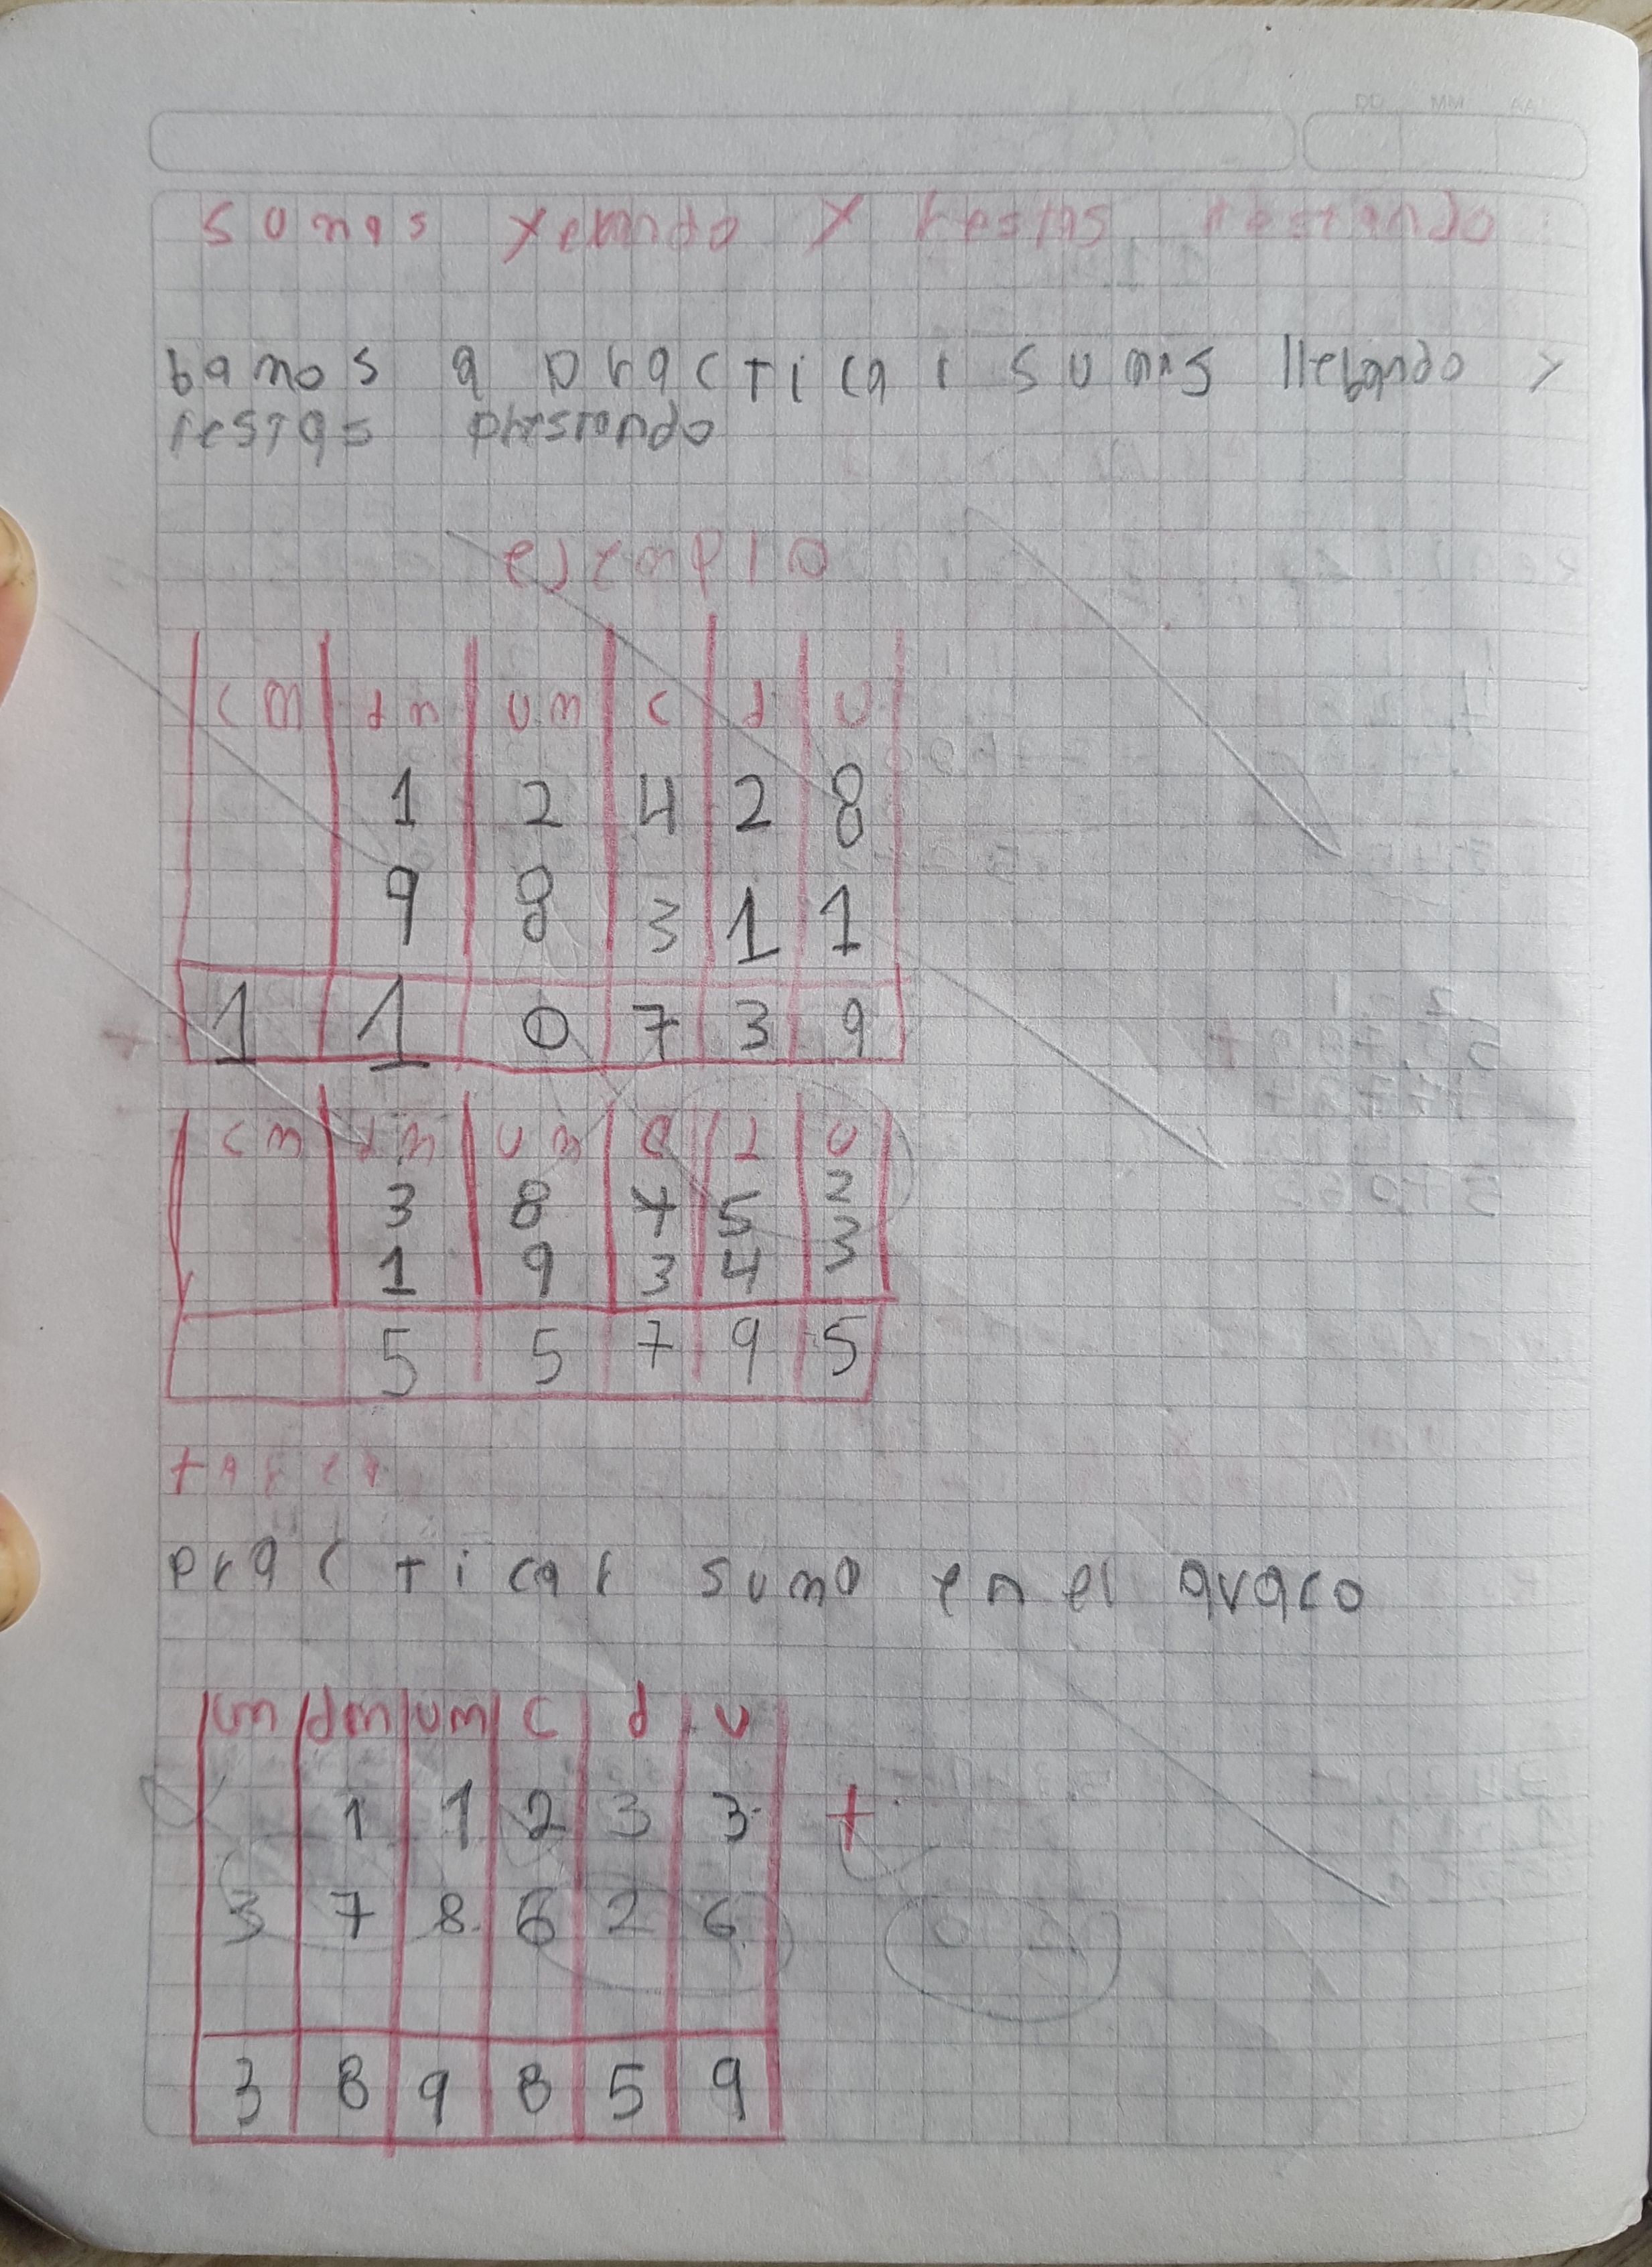 DD MM AA
sumas yebando y restas restando
bamos a practicar sumas llebando y
restas prestando
ejemplo
cm dm um c d u
1 2 4 2 8
9 8 3 1 1
1 1 0 7 3 9
cm dm um c d u
3 8 4 5 2
1 9 3 4 3
5 5 7 9 5
tarea
practicar suma en el avaco
cm dm um c d u
1 1 2 3 3 +
3 7 8 6 2 6
3 8 9 8 5 9